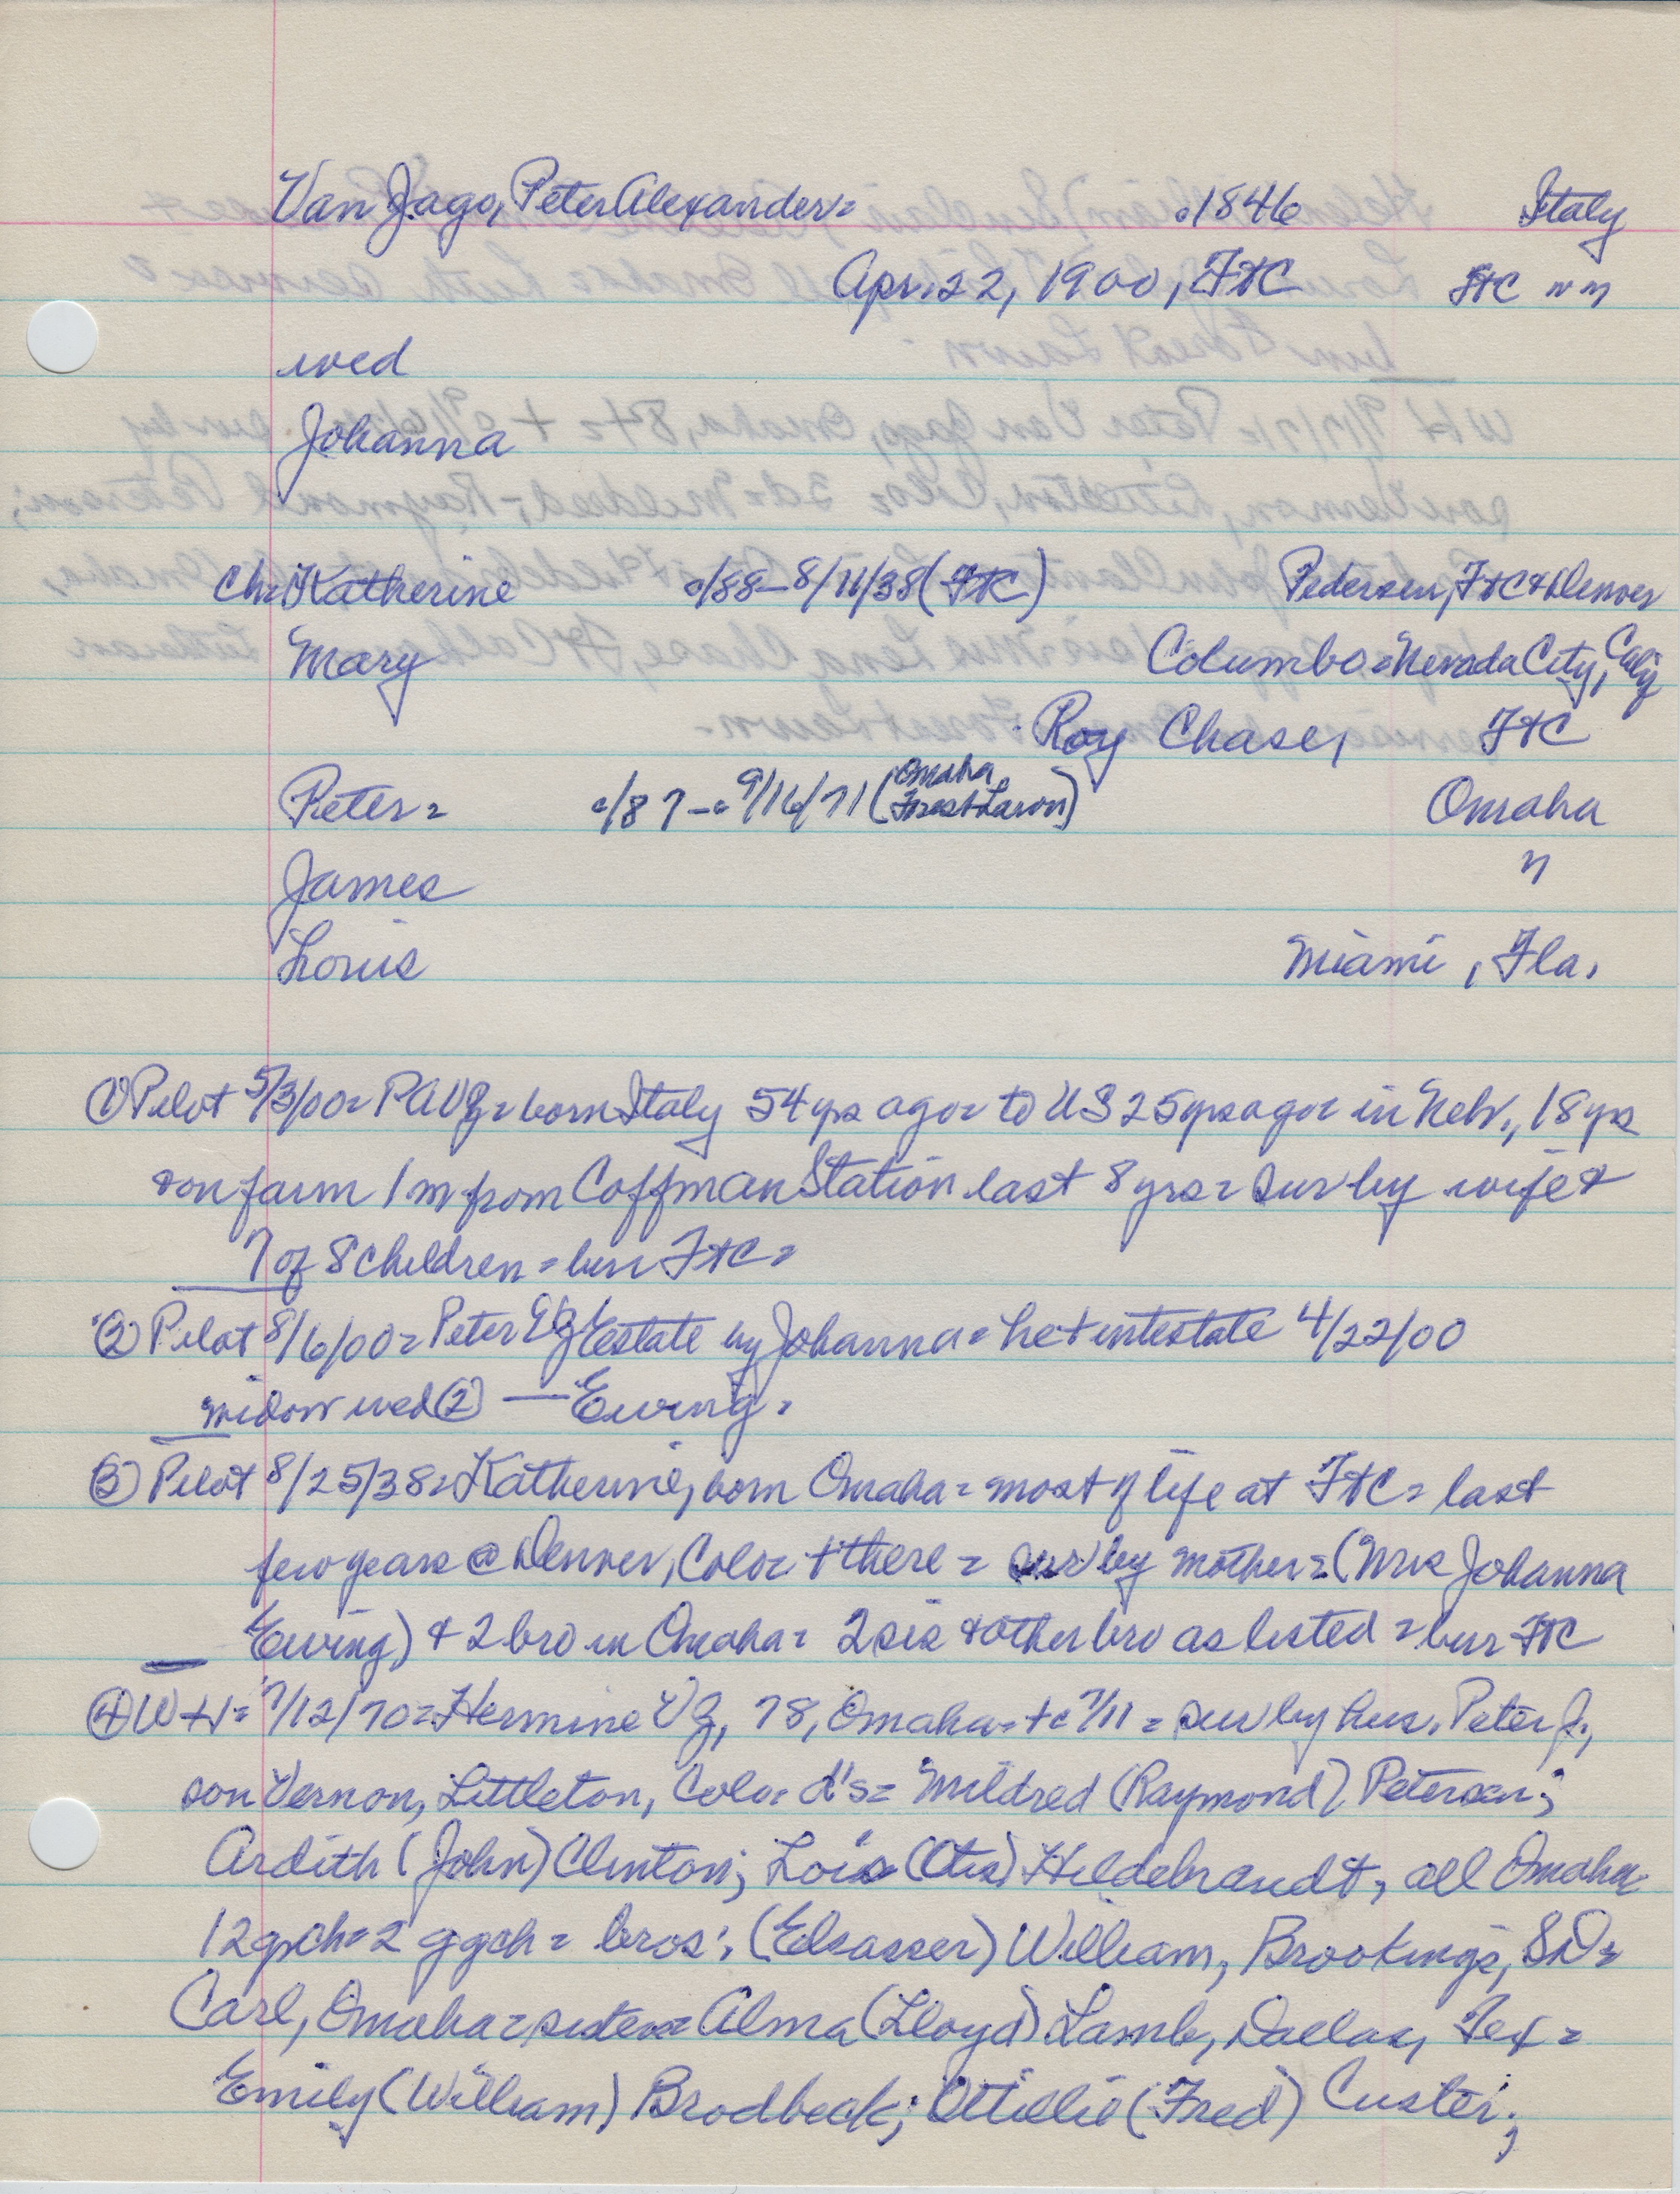 Van Jago, Peter Alexander= c1846 Italy
Apr. 22, 1900, FtC FtC " "
wed
Johanna
Ch: Katherine c/88–8/11/38 (FtC) Pedersen, FtC & Denver
Mary Columbo = Nevada City, Calif
Roy Chase, FtC
Peter= c/87–c9/16/71 (Omaha, Forest Lawn) Omaha
James "
Louis Miami, Fla.
① Pilot 5/3/00= PAVJ= born Italy 54 yrs ago= to US 25 yrs ago= in Nebr., 18 yrs
& on farm 1 m from Coffman Station last 8 yrs= sur by wife &
7 of 8 children = bur FtC=
② Pilot 8/6/00= Peter VJ estate by Johanna= he + intestate 4/22/00
widow wed ② — Ewing.
③ Pilot 8/25/38= Katherine, born Omaha= most of life at FtC= last
few years @ Denver, Colo= + there = sur by mother= (Mrs Johanna
Ewing) & 2 bro in Omaha= 2 sis & other bro as listed = bur FtC
④ W-H= 7/12/70= Hermine VJ, 78, Omaha= + c 7/11 = sur by hus. Peter J.,
son Vernon, Littleton, Colo= d's= Mildred (Raymond) Peterson;
Ardith (John) Clinton; Lois (Otis) Hildebrandt, all Omaha
12 grch= 2 ggch= bros: (Elsasser) William, Brookings, SD=
Carl, Omaha= sisters= Alma (Lloyd) Lamb, Dallas, Tex=
Emily (William) Brodbeck; Ottielie (Fred) Custer;